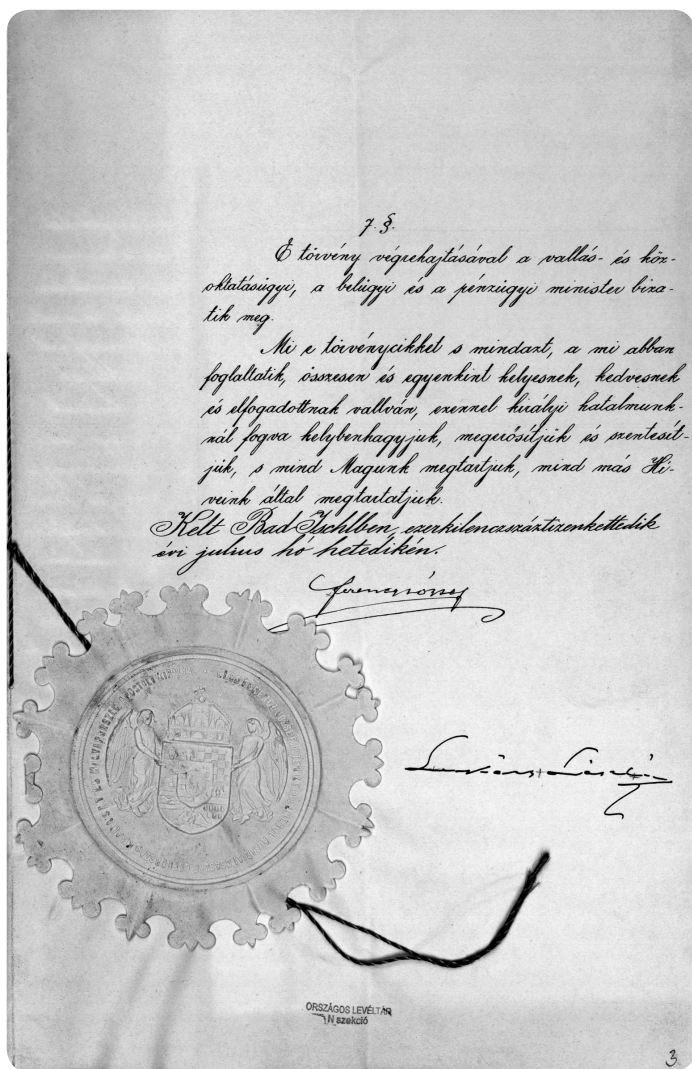 7. §.
E törvény végrehajtásával a vallás- és köz-
oktatásügyi, a belügyi és a pénzügyi minister biza-
tik meg.
Mi e törvénycikket s mindazt, a mi abban
foglaltatik, összesen és egyenkint helyesnek, kedvesnek
és elfogadottnak vallván, ezennel királyi hatalmunk-
nál fogva helybenhagyjuk, megerősítjük és szentesít-
jük, s mind Magunk megtartjuk, mind más Hi-
veink által megtartatjuk.
Kelt Bad-Ischlben, ezerkilenczszáztizenkettedik
évi julius hó hetedikén.
Ferencz József
Lukács László
ORSZÁGOS LEVÉLTÁR
N szekció
3